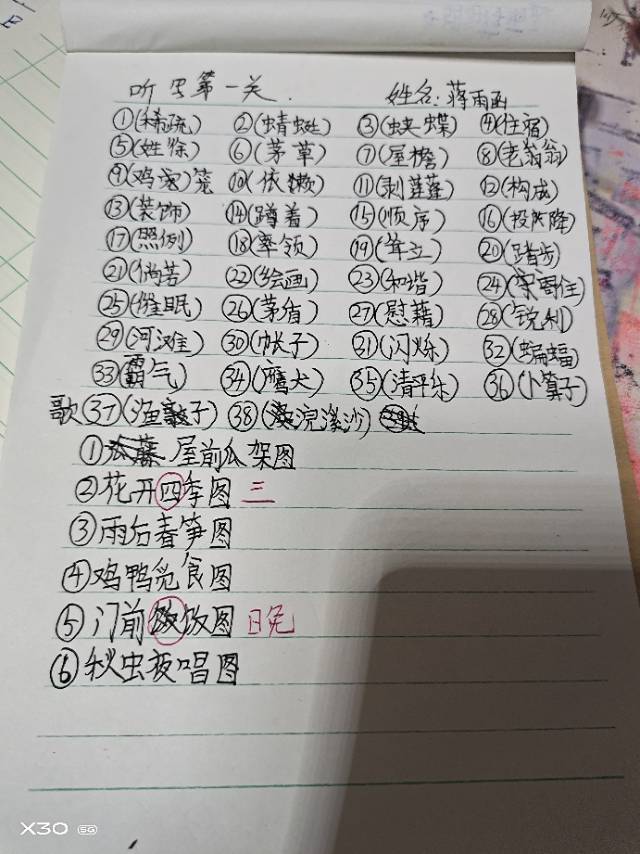 听写第一关. 姓名:蒋雨函
①(稀疏) ②(蜻蜓) ③(蛱蝶) ④(住宿)
⑤(姓徐) ⑥(茅草) ⑦(屋檐) ⑧(老翁翁)
⑨(鸡窝)笼 ⑩(依赖) ⑪(剥莲蓬) ⑫(构成)
⑬(装饰) ⑭(蹲着) ⑮(顺序) ⑯(投降)
⑰(照例) ⑱(率领) ⑲(耸立) ⑳(踏步)
㉑(倘若) ㉒(绘画) ㉓(和谐) ㉔(寄住)
㉕(催眠) ㉖(茅盾) ㉗(慰藉) ㉘(锐利)
㉙(河滩) ㉚(帐子) ㉛(闪烁) ㉜(蝙蝠)
㉝(霸气) ㉞(鹰犬) ㉟(清平乐) ㊱(卜算子)
歌㊲(渔子) ㊳(浣溪沙)
①屋前瓜架图
②花开四季图 三
③雨后春笋图
④鸡鸭觅食图
⑤门前饭图 晚
⑥秋虫夜唱图
X30 5G